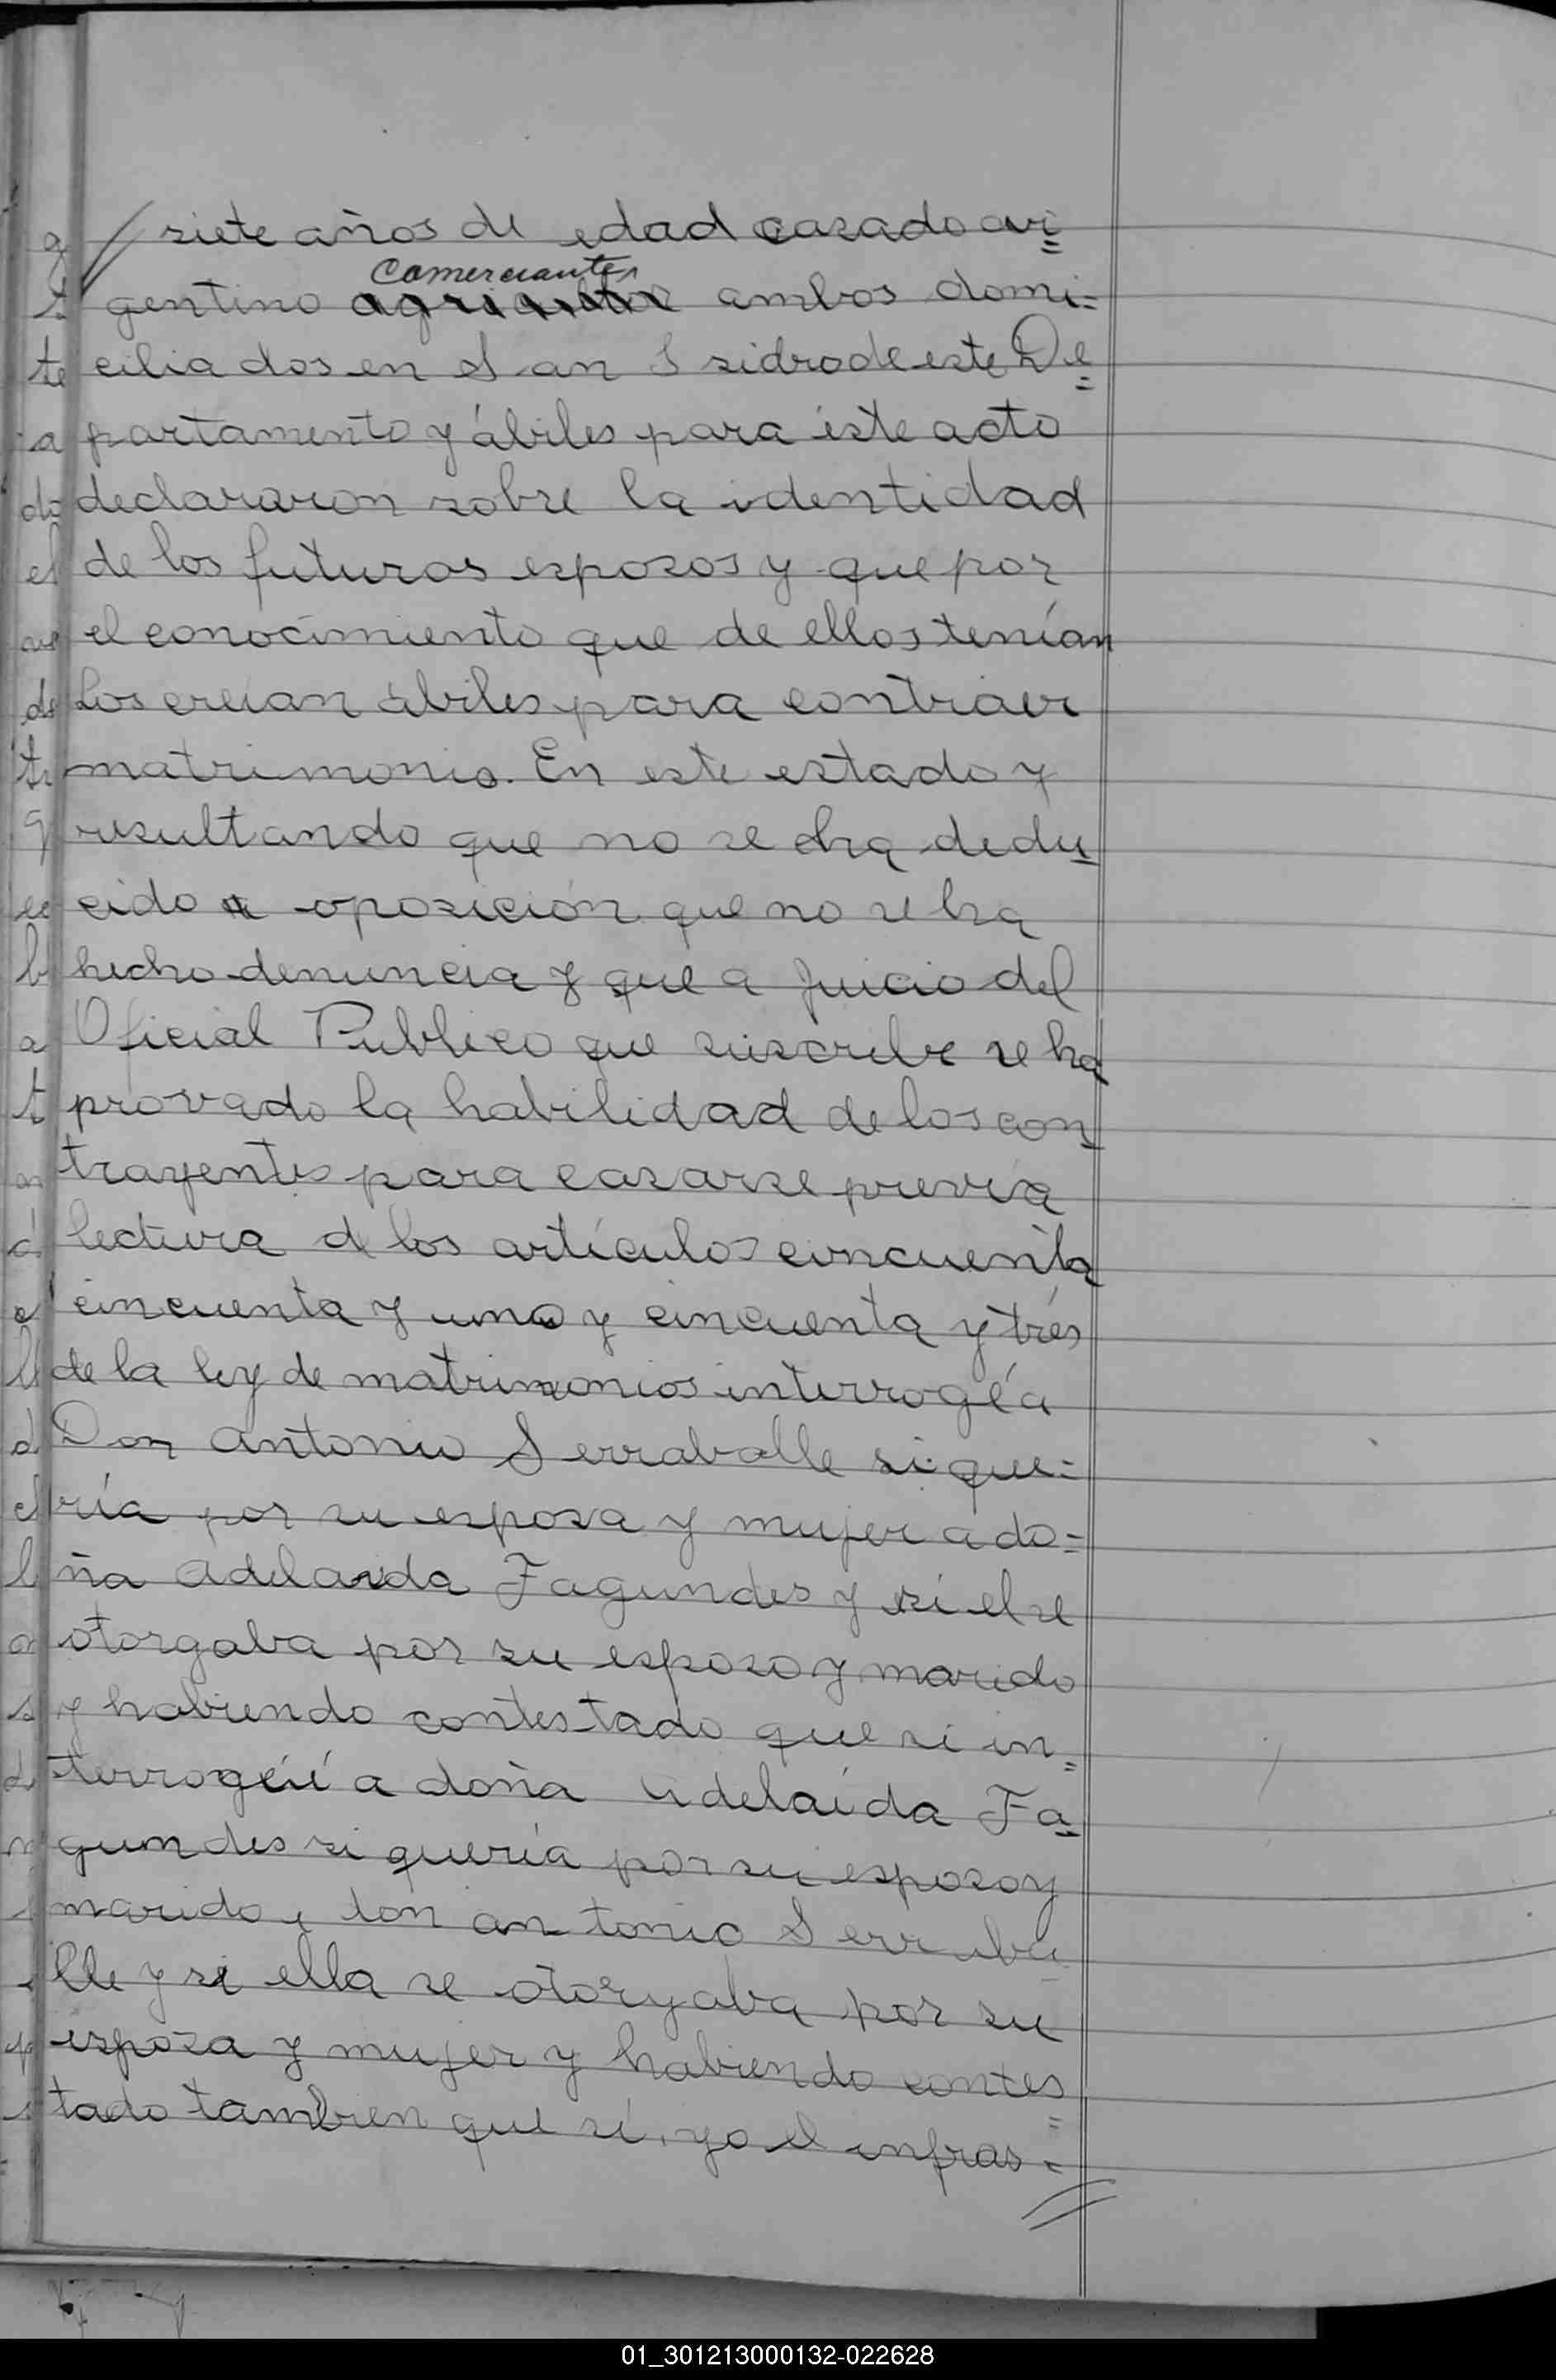 siete años de edad casado ar=
Comerciantes
gentino agricultor ambos domi=
ciliados en San Isidro de este De=
partamento y ábiles para éste acto
declararon sobre la identidad
de los futuros esposos y que por
el conocimiento que de ellos tenían
Los creian ábiles para contraer
matrimonio. En este estado y
resultando que no se ha dedu
cido oposición que no se ha
hecho denuncia y que a juicio del
Oficial Publico que suscribe se ha
provado la habilidad de los con
trayentes para casarse previa
lectura de los artículos cincuenta
cincuenta y uno y cincuenta y trés
de la ley de matrimonios interrogé a
Don Antonio Serraballe si que=
ría por su esposa y mujer a do=
ña Adelaida Fagundes y si el se
otorgaba por su esposo y marido
y habiendo contestado que si in=
terrogéi a doña Adelaida Fa
gundes si quería por su esposo y
marido a don Antonio Serraba
lle y si ella se otorgaba por su
esposa y mujer y habiendo contes
tado tambien que sí, yo el infras=
01_301213000132-022628